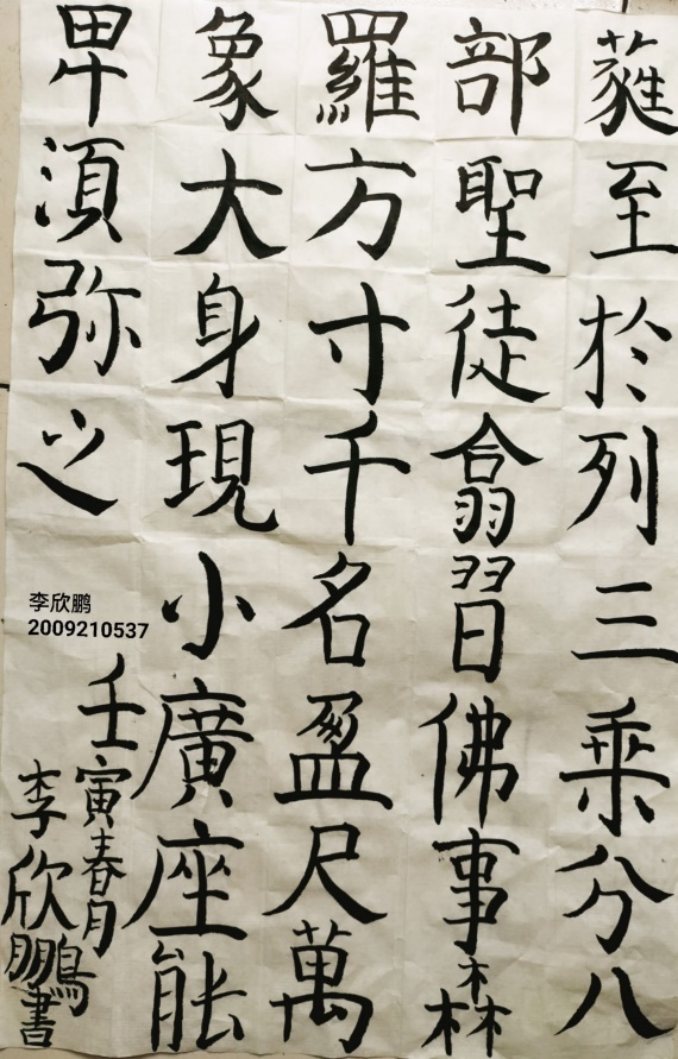 蕤至於列三乘分八
部聖徒翕習佛事森
羅方寸千名盈尺萬
象大身現小廣座能
卑須弥之
壬寅春月
李欣鵬書
李欣鹏
2009210537